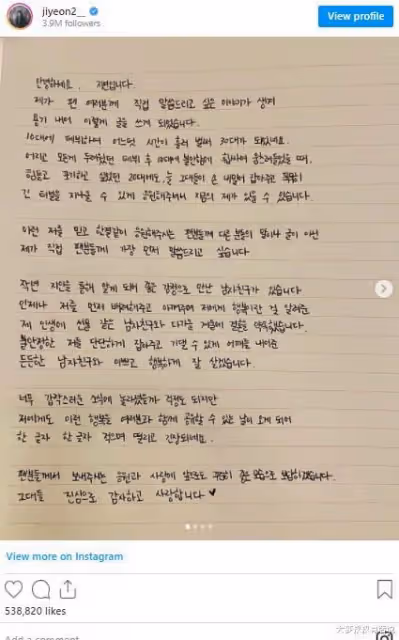 jiyeon2__
3.9M followers
View profile
안녕하세요. 지연입니다.
제가 팬 여러분께 직접 말씀드리고 싶은 이야기가 생겨
용기 내어 이렇게 글을 쓰게 되었습니다.
10대에 데뷔하여 어느덧 시간이 흘러 벌써 30대가 되었네요.
어리고 모든게 두려웠던 데뷔 후 10대에 불안하며 힘들어 때,
힘들고 포기하고 싶었던 20대에도 늘 그대들이 손 내밀어 잡아주고 묵묵히
긴 터널을 지나올 수 있게 응원해주셔서 지금의 제가 있을 수 있습니다.
이런 저를 믿고 한결같이 응원해주시는 팬분들께 다른 분들의 말이나 글이 아닌
제가 직접 팬분들께 가장 먼저 말씀드리고 싶습니다
작년 지인을 통해 알게 되어 좋은 감정으로 만난 남자친구가 있습니다
언제나 저를 먼저 배려해주고 아껴주며 저에게 행복이란 걸 알려준
제 인생에 선물 같은 남자친구와 다가올 겨울에 결혼을 약속했습니다.
불안정한 저를 단단하게 잡아주고 기댈 수 있게 어깨를 내어준
든든한 남자친구와 예쁘고 행복하게 잘 살겠습니다.
너무 갑작스러운 소식에 놀라셨을까 걱정도 되지만
저에게도 이런 행복을 여러분과 함께 공유할 수 있는 날이 오게 되어
한 글자 한 글자 적으며 떨리고 긴장되네요.
팬분들께서 보내주시는 응원과 사랑에 앞으로도 꾸준히 좋은 모습으로 보답하겠습니다.
그대들 진심으로 감사하고 사랑합니다 ♥
View more on Instagram
538,820 likes
Add a comment